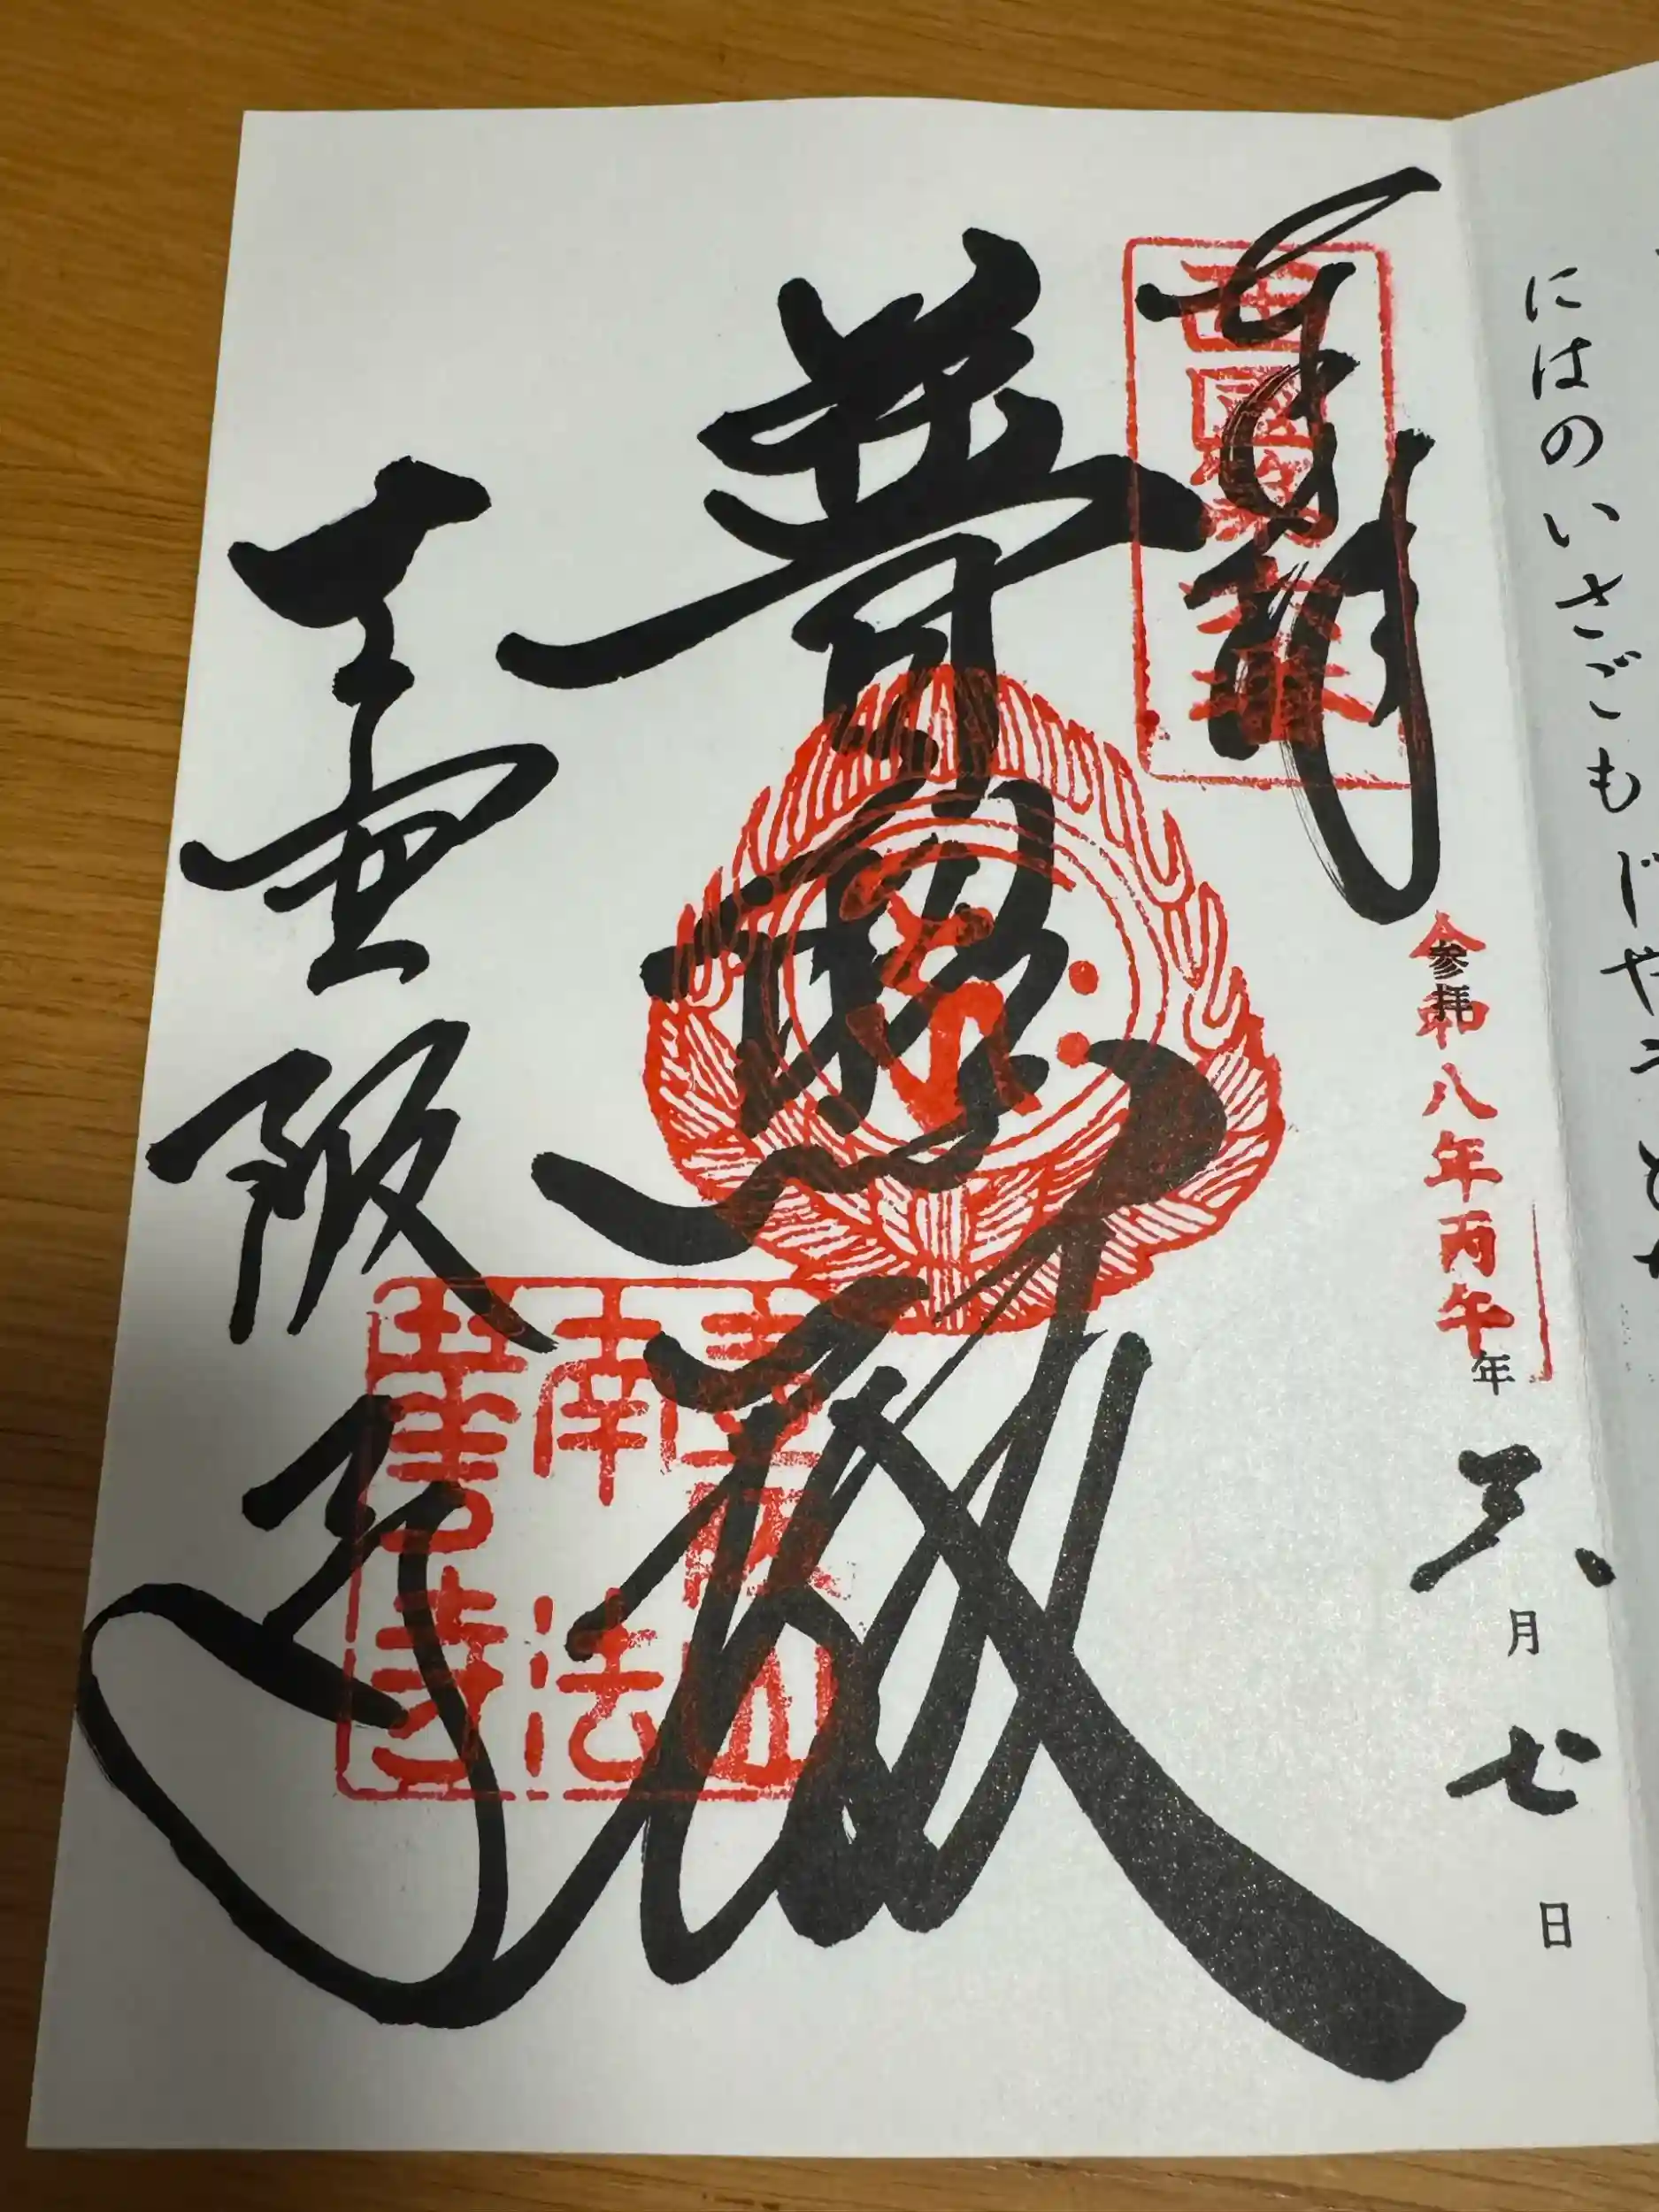 にはのいさごもじやう
奉拝
西國第六番
参拝
令和八年丙午年六月七日
普照殿
壷阪山
南法
華寺
壷阪寺